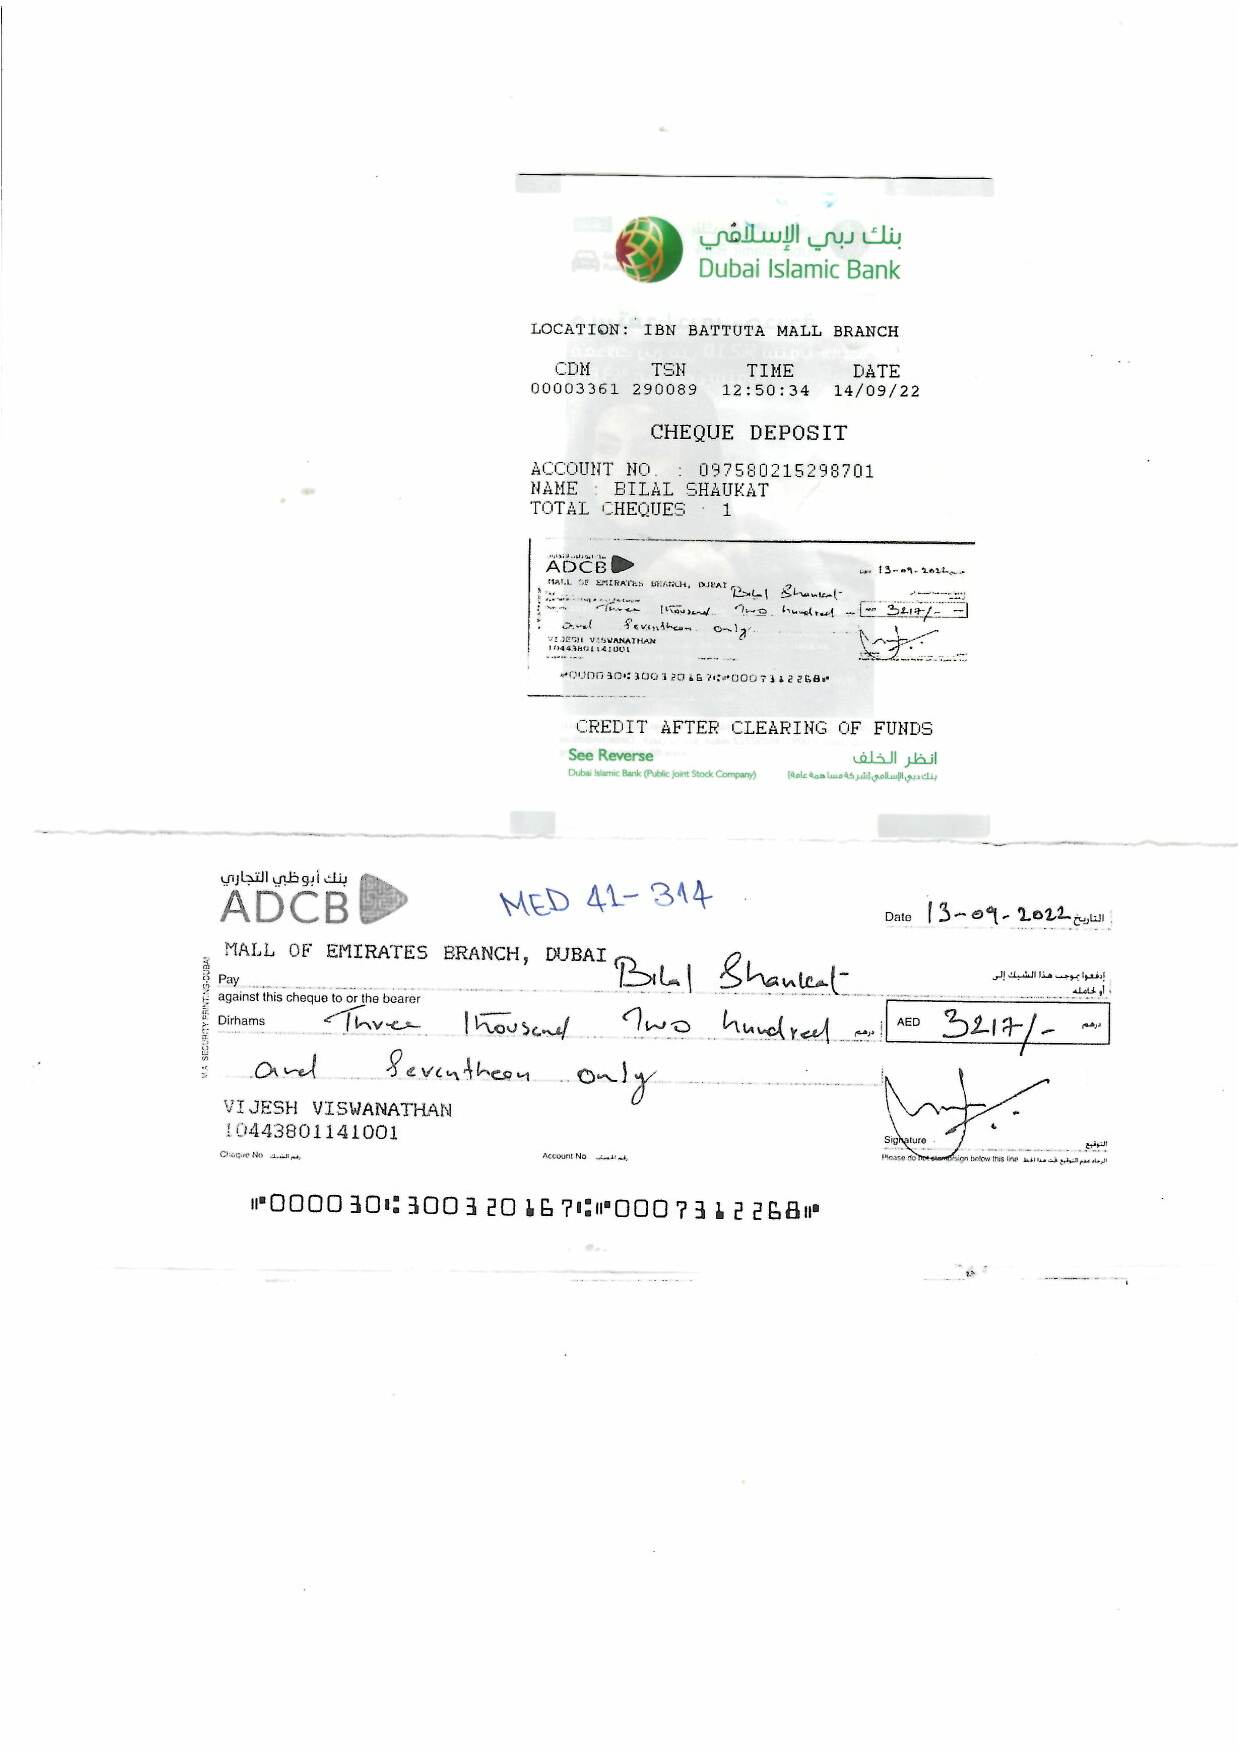 بنك دبي الإسلامي
Dubai Islamic Bank
LOCATION: IBN BATTUTA MALL BRANCH
CDM TSN TIME DATE
00003361 290089 12:50:34 14/09/22
CHEQUE DEPOSIT
ACCOUNT NO. : 097580215298701
NAME : BILAL SHAUKAT
TOTAL CHEQUES : 1
ADCB
13-09-2022
MALL OF EMIRATES BRANCH, DUBAI Bilal Shaukat
Three thousand Two hundred 3217/-
and Seventheen only
VIJESH VISWANATHAN
10443801141001
⑈000030⑆300320167⑆⑈0007312268⑈
CREDIT AFTER CLEARING OF FUNDS
See Reverse انظر الخلف
Dubai Islamic Bank (Public Joint Stock Company) بنك دبي الإسلامي (شركة مساهمة عامة)
بنك أبوظبي التجاري
ADCB
MED 41-314
Date 13-09-2022 التاريخ
MALL OF EMIRATES BRANCH, DUBAI
Pay Bilal Shaukat إدفعوا بموجب هذا الشيك إلى
against this cheque to or the bearer أو لحامله
Dirhams Three thousand Two hundred درهم AED 3217/- درهم
and Seventheen only
VIJESH VISWANATHAN
10443801141001
Signature التوقيع
Cheque No رقم الشيك Account No رقم الحساب Please do not stamp/sign below this line الرجاء عدم التوقيع تحت هذا الخط
⑈000030⑆300320167⑆⑈0007312268⑈